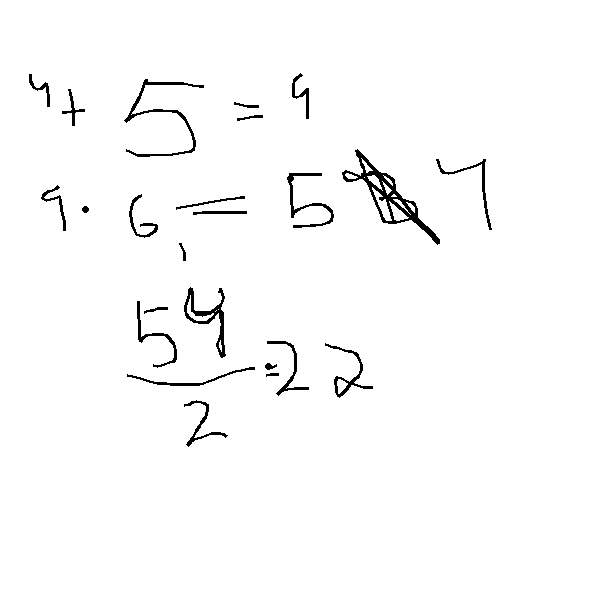 4 + 5 = 9
9 · 6 = 5 4
54/2 = 22